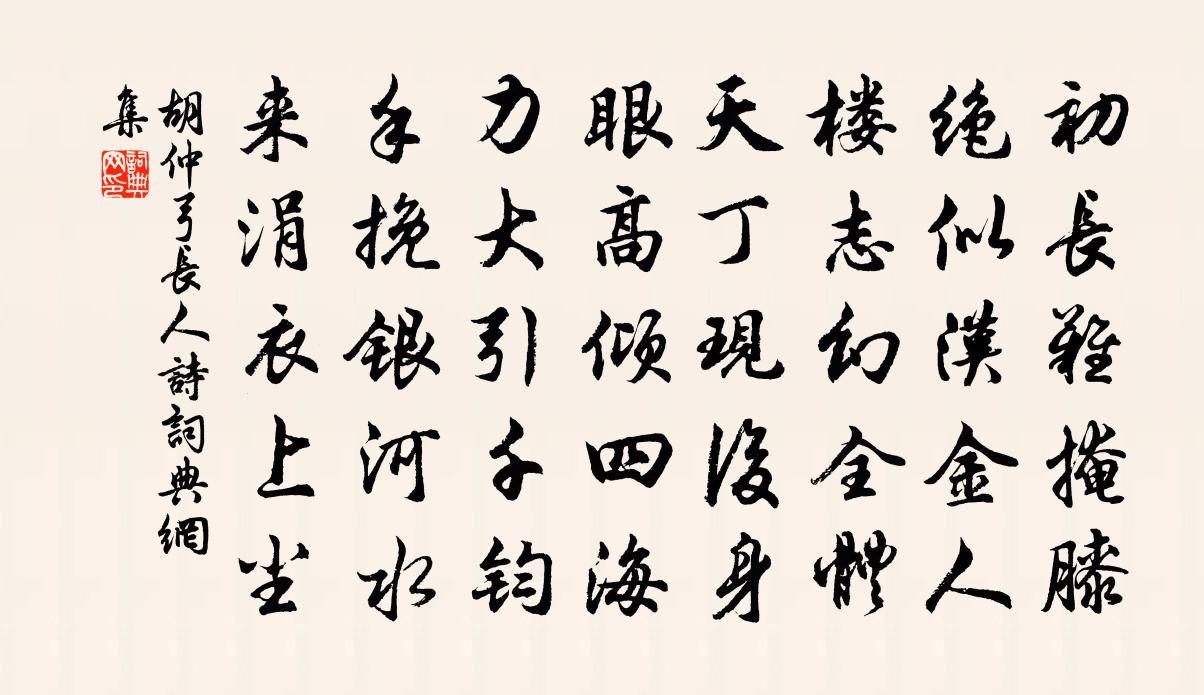 初長難掩膝
絕似漢金人
楼志幻全體
天丁現後身
眼高傾四海
力大引千鈞
手挽銀河水
来涓衣上尘
胡仲弓長人詩詞典網
集
詞典网印